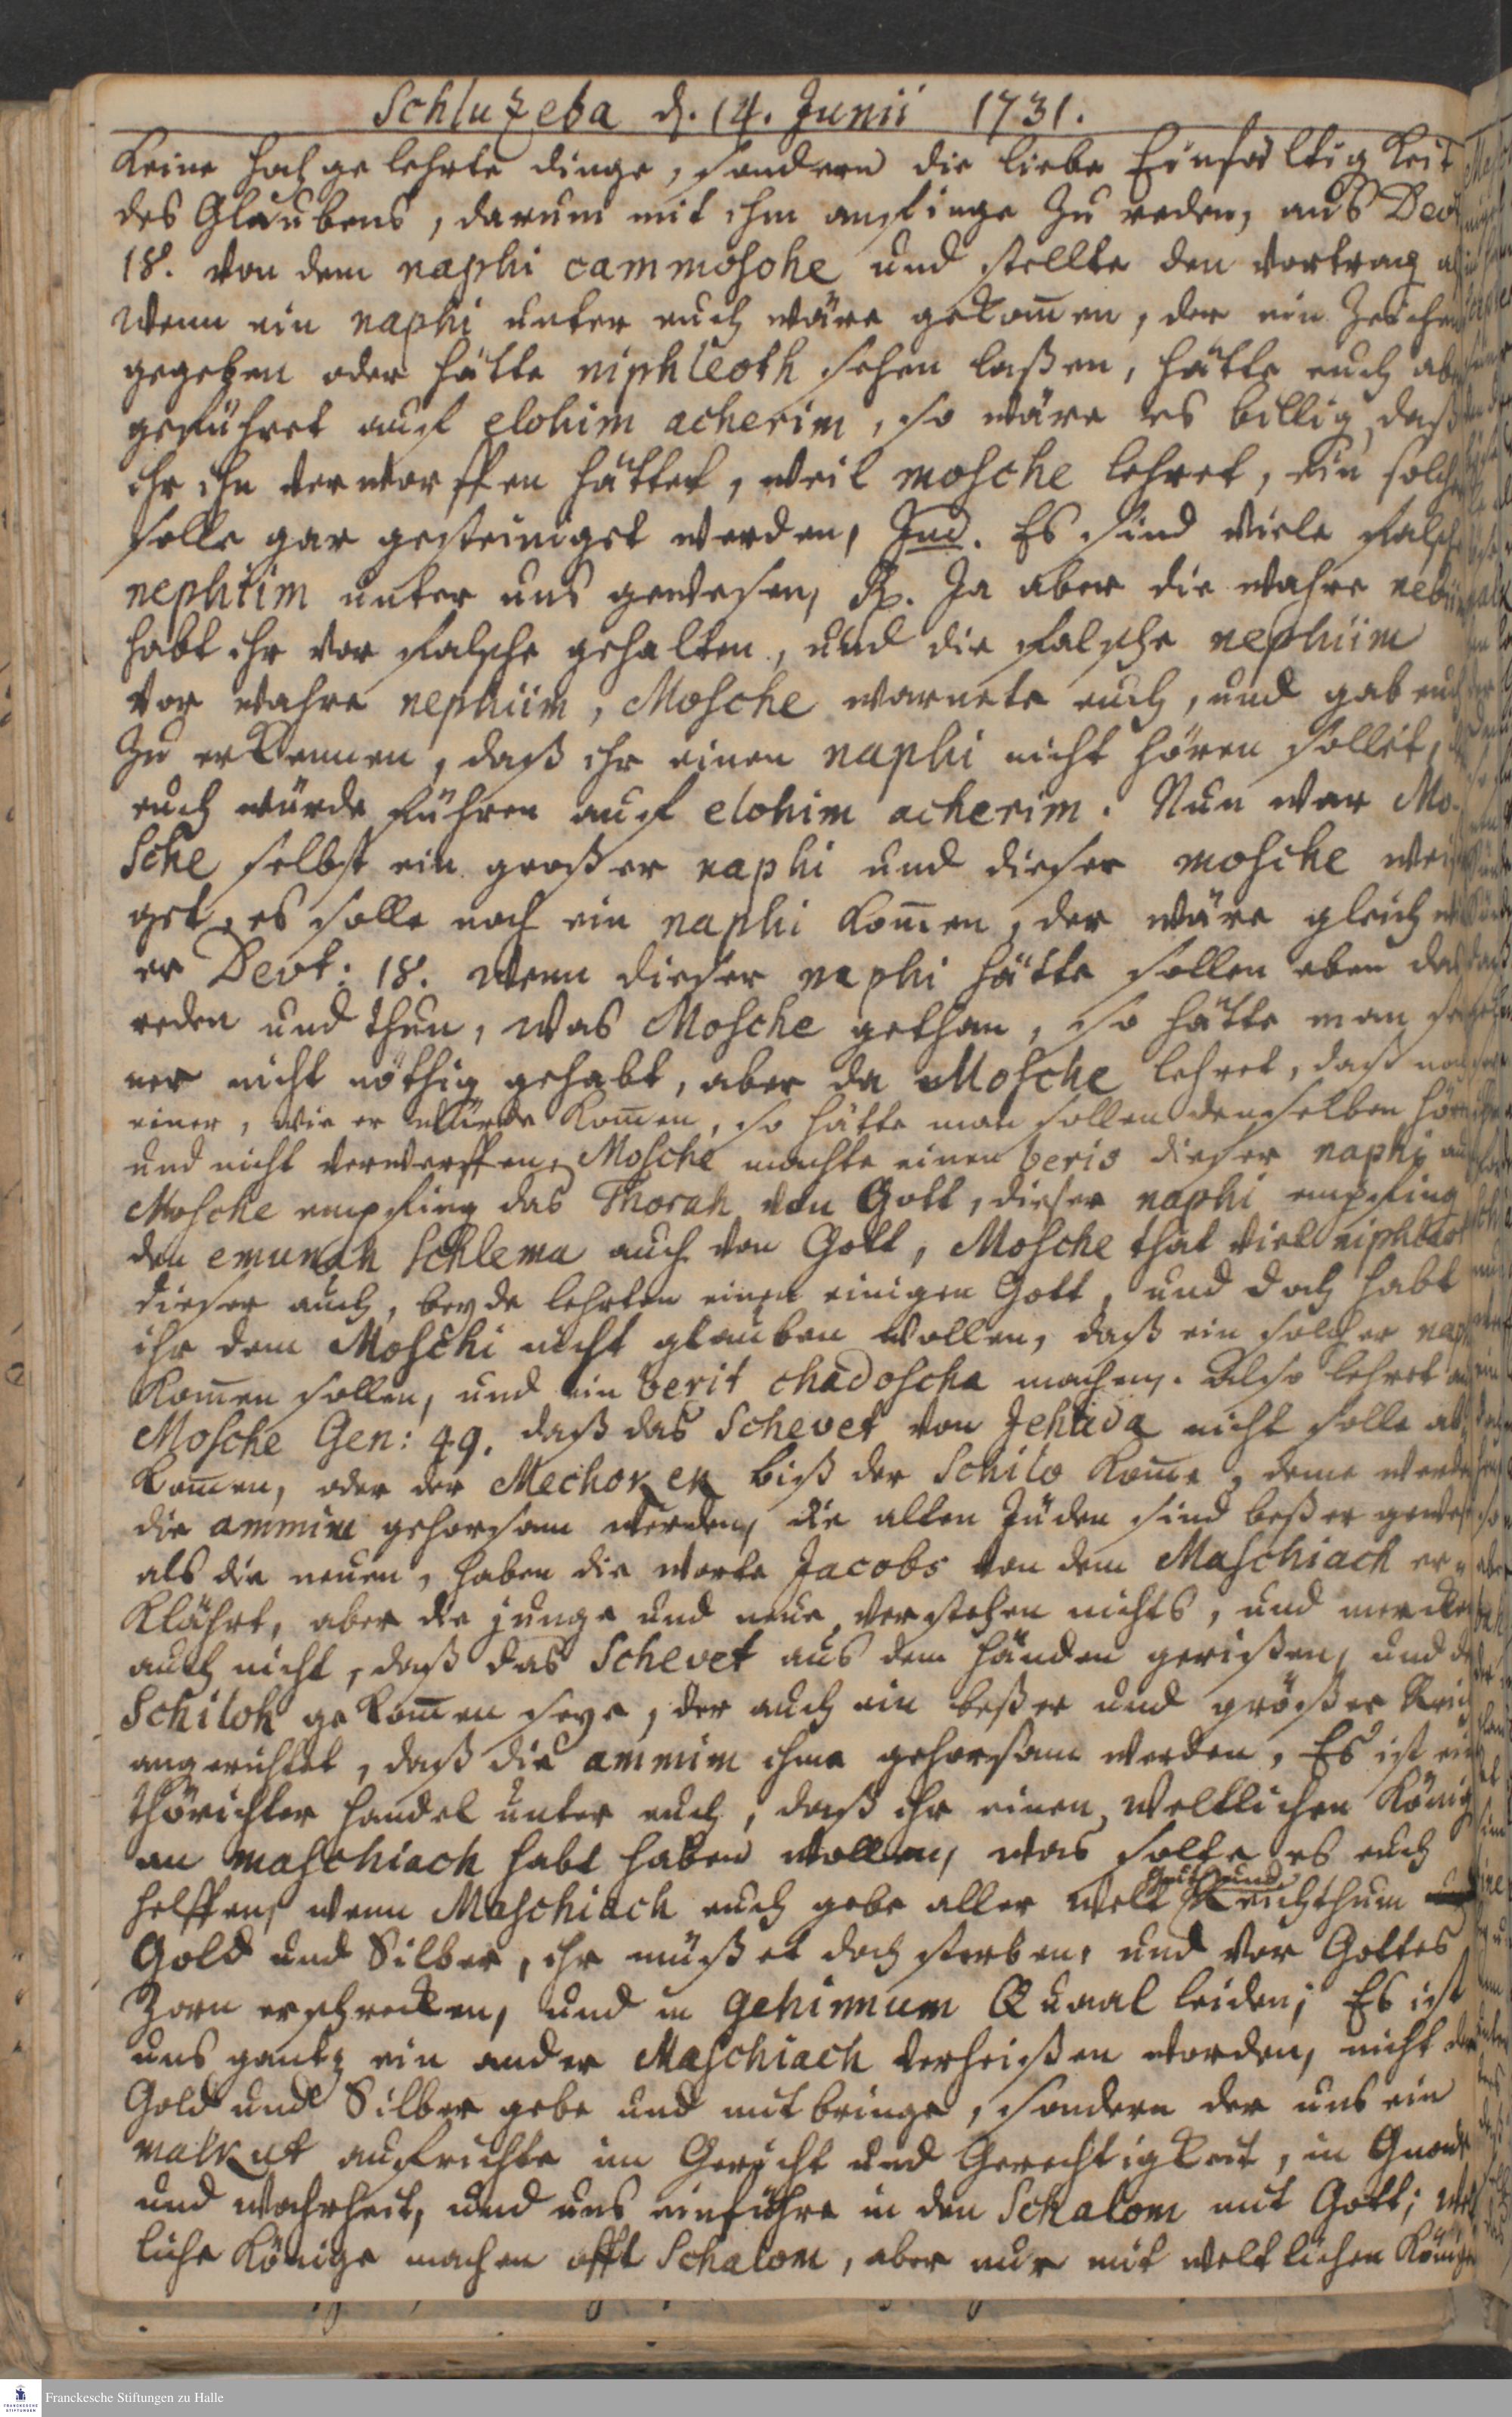 Schluzeba d. 14. Junii 1731.
keine hochgelehrte dinge, sondern die liebe Einfältigkeit
des Glaubens, darum mit ihm anfinge zu reden, aus Deut
18. von dem naphi cammosche und stellte den Vortrag
Wenn ein naphi unter euch wäre gekom̄en, der ein Zeichen
gegeben oder hätte niphleoth sehen laßen, hätte euch aber
geführet auf elohim acherim, so wäre es billig, daß
ihr ihn verworffen hättet, weil mosche lehret, ein solcher
solle gar gesteiniget werden, Jud. Es sind viele falsche
nephiim unter uns gewesen, R. Ja aber die wahre nebiim
habt ihr vor falsche gehalten, und die falsche nephiim
vor wahre nephiim, Mosche warnete euch, und gab euch
zu erkennen, daß ihr einen naphi nicht hören sollet,
euch würde führen auf elohim acherim. Nun war Mo-
sche selbst ein großer naphi und dieser mosche
get, es solle noch ein naphi kom̄en, der wäre gleich wie
er Devt: 18. Wenn dieser naphi hätte sollen eben das
reden und thun, was Mosche gethan, so hätte man
ner nicht nöthig gehabt, aber da Mosche lehret, daß noch
einer, wie er würde kom̄en, so hätte man sollen denselben hören
und nicht verwerffen, Mosche machte einen beris dieser naphi auch
Mosche empfing das Thorah von Gott, dieser naphi empfing
den emunah schlema auch von Gott, Mosche that viel niphleoth
dieser auch, beyde lehrten einen einigen Gott, und doch habt
ihr dem Moschi nicht glauben wollen, daß ein solcher naphi
kom̄en sollen, und ein berit chadoscha machen. Also lehret
Mosche Gen: 49. daß das Schevet von Jehuda nicht solle ab-
kom̄en, oder der Mechokek biß der Schilo kom̄e, deme werden
die ammim gehorsam werden, die alten Jüden sind beßer gewesen
als die neuen, haben die worte Jacobs von dem Maschiach er-
klährt, aber die junge und neue verstehen nichts, und mercken
auch nicht, daß das Schevet aus dem händen gerißen, und der
Schiloh gekom̄en seye, der auch ein beßer und größer Reich
angerichtet, daß die ammim ihme gehorsam werden, Es ist ein
thörichter handel unter euch, daß ihr einen weltlichen König
an maschiach habt haben wollen, was solte es euch
helffen, wenn Maschiach euch gebe aller Welt Guth und Reichthum
Gold und Silber, ihr müßet doch sterben, und vor Gottes
Zorn erschrecken, und in gehinnum Quaal leiden; Es ist
uns gantz ein ander Maschiach verheißen worden, nicht der
Gold und Silber gebe und mitbringe, sondern der uns ein
malkut aufrichte im Gericht und Gerechtigkeit, in Gnade
und Wahrheit, und uns einführe in den Schalom mit Gott; Welt
liche Könige machen offt Schalom, aber nur mit weltlichen Königen
Franckesche Stiftungen zu Halle